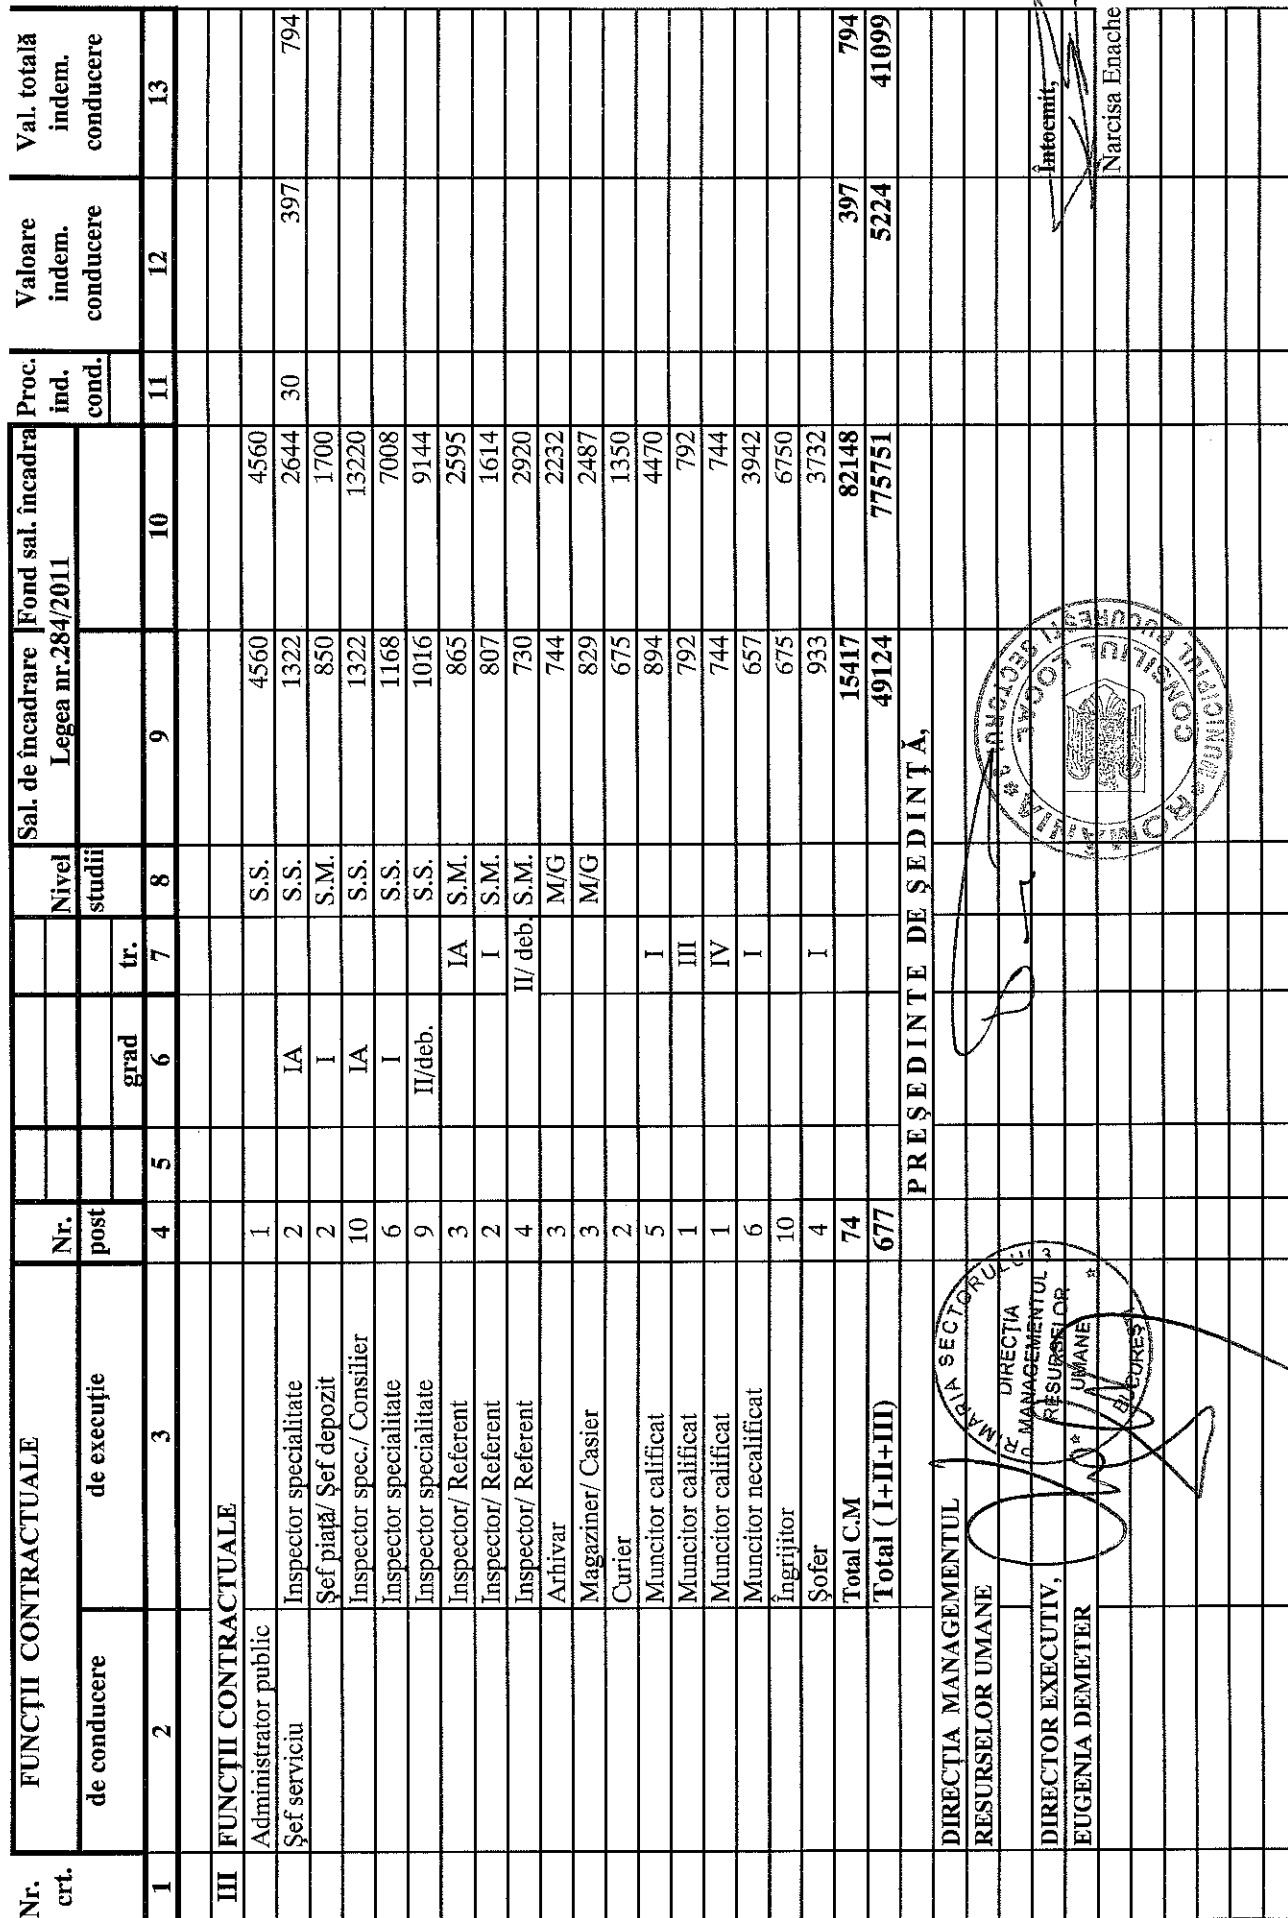 Nr. crt. FUNCȚII CONTRACTUALE Nr. post Nivel studii Sal. de încadrare Fond sal. încadra Proc. ind. cond. Valoare indem. conducere Val. totală indem. conducere
de conducere de execuție grad tr. Legea nr.284/2011
1 2 3 4 5 6 7 8 9 10 11 12 13
III FUNCȚII CONTRACTUALE
Administrator public 1 S.S. 4560 4560
Șef serviciu Inspector specialitate 2 IA S.S. 1322 2644 30 397 794
Șef piață/ Șef depozit 2 I S.M. 850 1700
Inspector spec./ Consilier 10 IA S.S. 1322 13220
Inspector specialitate 6 I S.S. 1168 7008
Inspector specialitate 9 II/deb. S.S. 1016 9144
Inspector/ Referent 3 IA S.M. 865 2595
Inspector/ Referent 2 I S.M. 807 1614
Inspector/ Referent 4 II/ deb. S.M. 730 2920
Arhivar 3 M/G 744 2232
Magaziner/ Casier 3 M/G 829 2487
Curier 2 675 1350
Muncitor calificat 5 I 894 4470
Muncitor calificat 1 III 792 792
Muncitor calificat 1 IV 744 744
Muncitor necalificat 6 I 657 3942
Îngrijitor 10 675 6750
Șofer 4 I 933 3732
Total C.M 74 15417 82148 397 794
Total ( I+II+III) 677 49124 775751 5224 41099
PREȘEDINTE DE ȘEDINȚĂ,
DIRECȚIA MANAGEMENTUL
RESURSELOR UMANE
DIRECTOR EXECUTIV,
EUGENIA DEMETER
PRIMĂRIA SECTORULUI 3
DIRECȚIA
MANAGEMENTUL
RESURSELOR
UMANE
BUCUREȘTI
ROMÂNIA
MUNICIPIUL BUCUREȘTI SECTORUL 3
CONSILIUL LOCAL
Întocmit,
Narcisa Enache